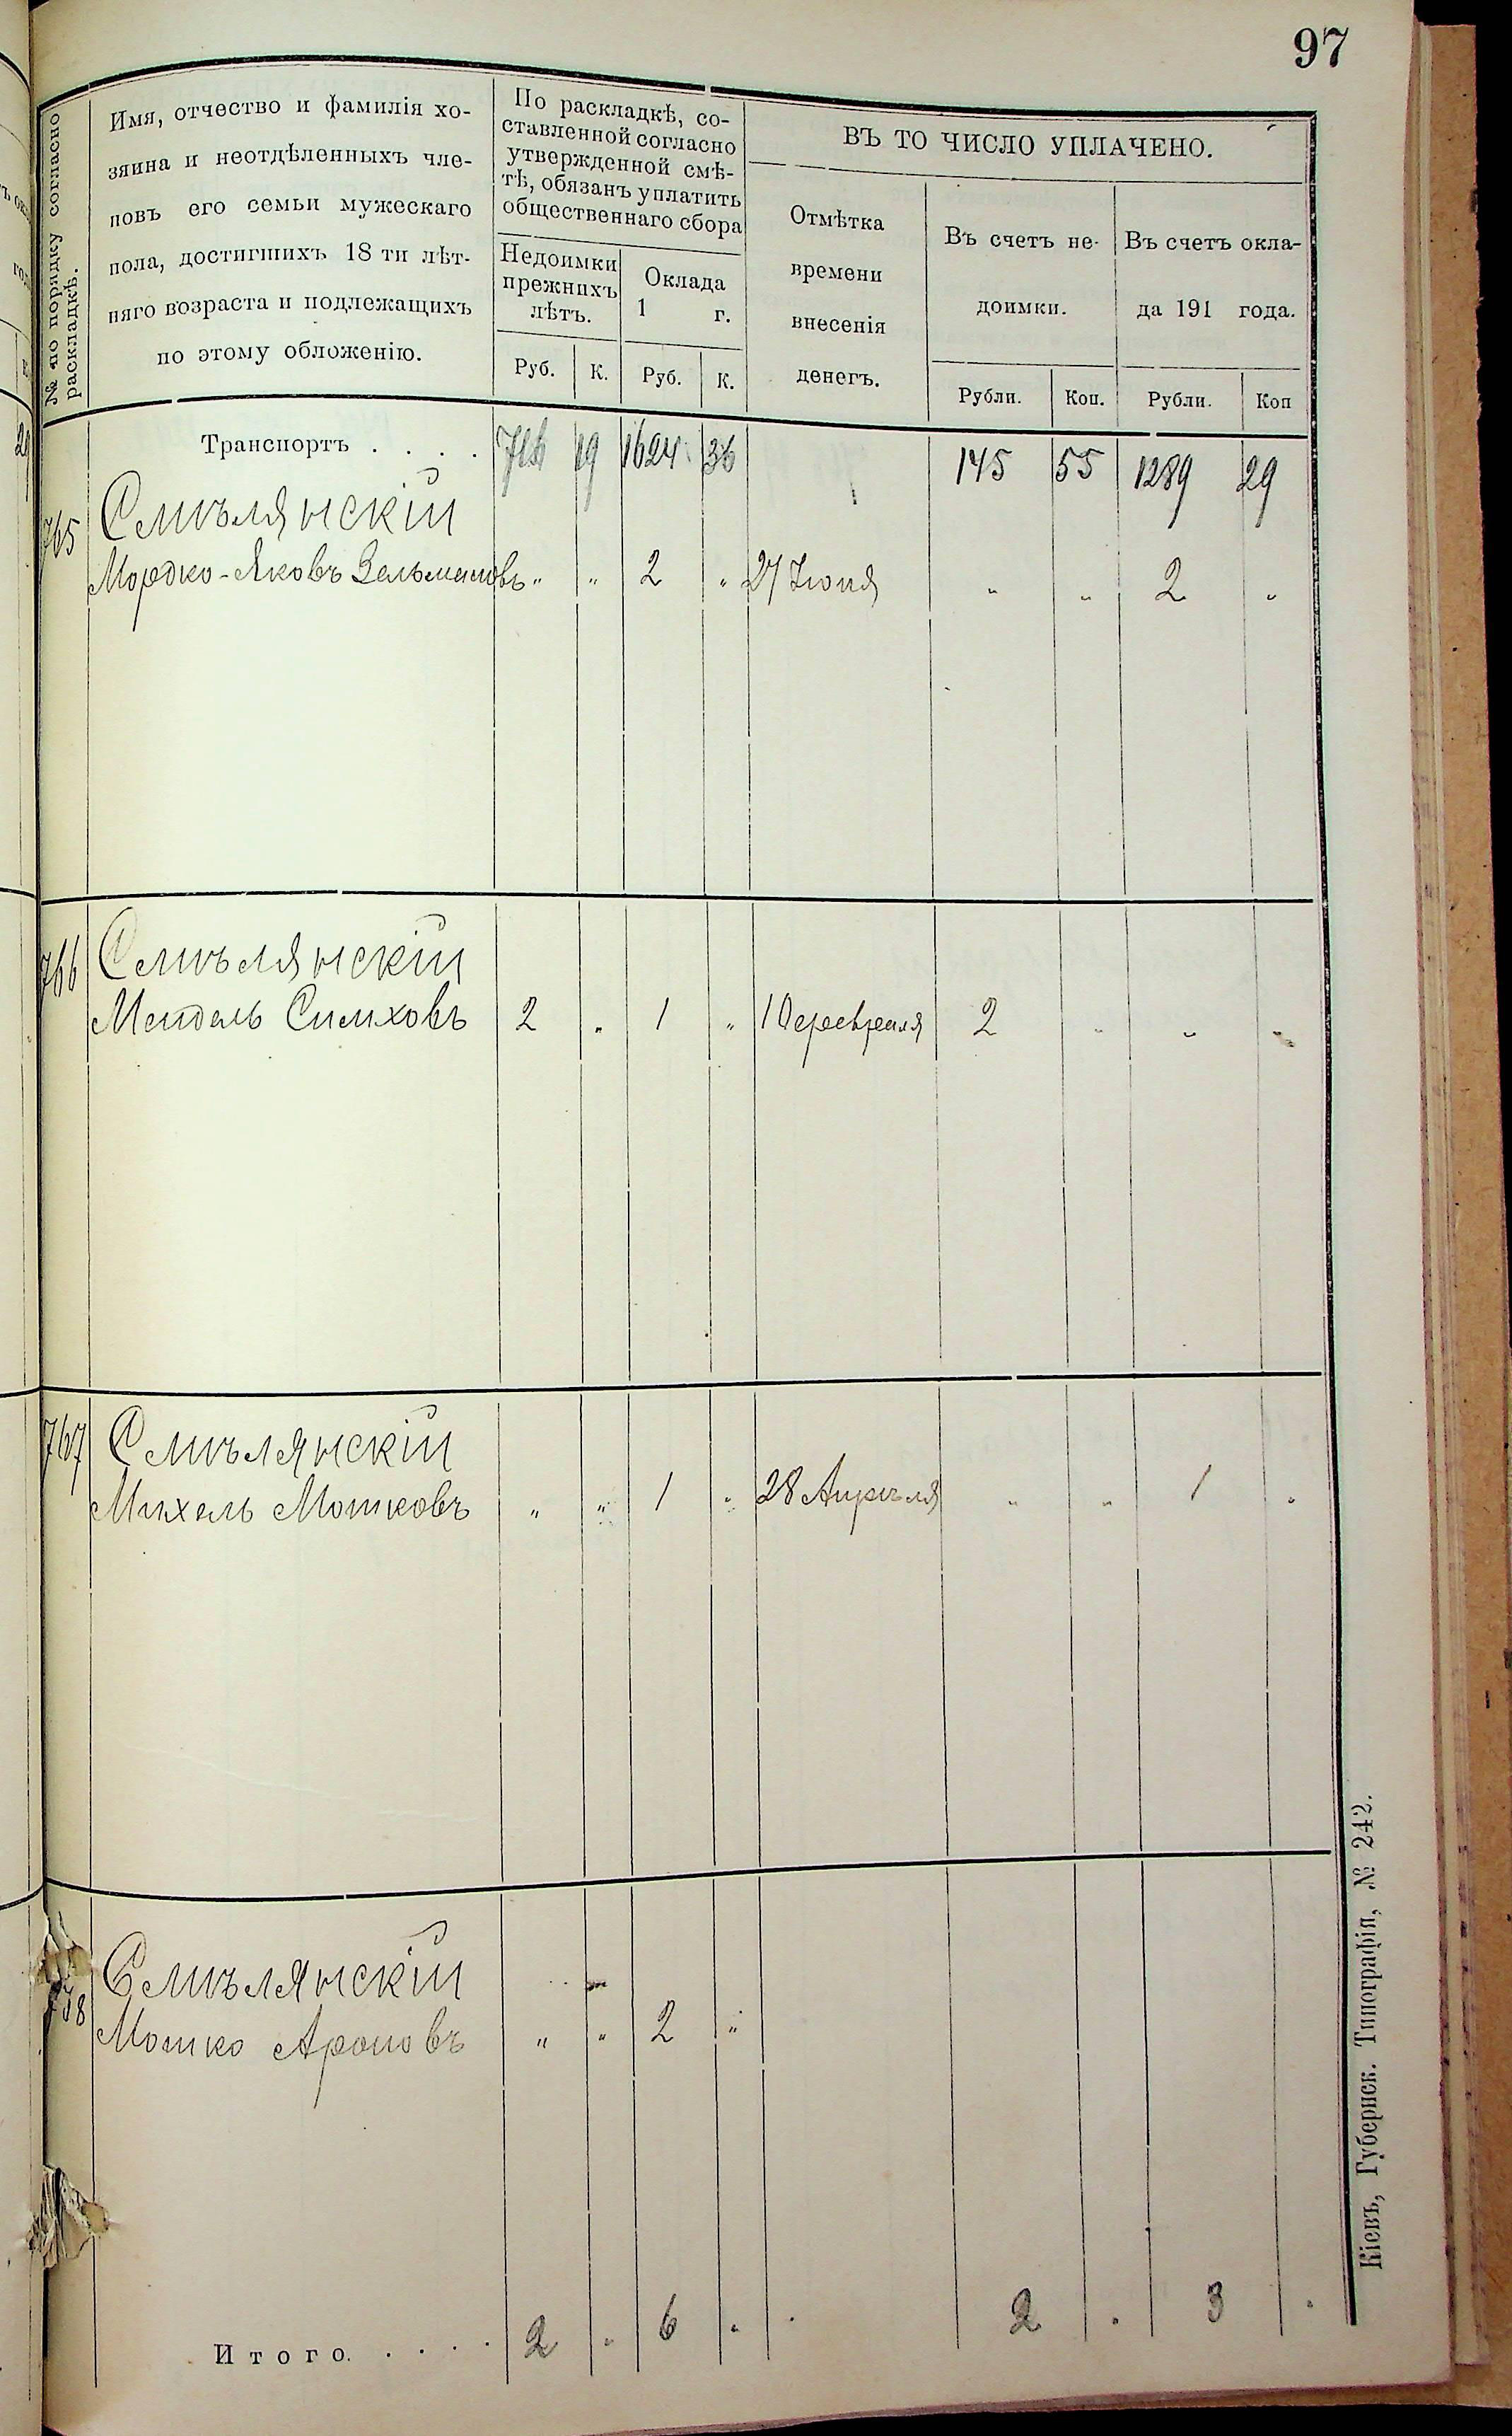 97
№ по порядку согласно
раскладкѣ.
Имя, отчество и фамилія хо-
зяина и неотдѣленныхъ чле-
новъ его семьи мужескаго
пола, достигшихъ 18 ти лѣт-
няго возраста и подлежащихъ
по этому обложенію.
По раскладкѣ, со-
ставленной согласно
утвержденной смѣ-
тѣ, обязанъ уплатить
общественнаго сбора
Недоимки
прежнихъ
лѣтъ.
Оклада
1 г.
Руб. К. Руб. К.
ВЪ ТО ЧИСЛО УПЛАЧЕНО.
Отмѣтка
времени
внесенія
денегъ.
Въ счетъ не-
доимки.
Въ счетъ окла-
да 191 года.
Рубли. Коп. Рубли. Коп
Транспортъ . . . . 19 1624 36 145 55 1289 29
765 Смѣлянскій
Мордко-Яковъ Зельмановъ " " 2 " 27 Іюня " " 2 "
766 Смѣлянскій
Мендель Симховъ 2 " 1 " 10 февраля 2 " " "
767 Смѣлянскій
Михель Мошковъ " " 1 " 28 Апрѣля " " 1 "
Смѣлянскій
Мошко Ароновъ " " 2 "
Итого. . . . . 2 " 6 " 2 " 3 "
Кіевъ, Губернск. Типографія, № 242.